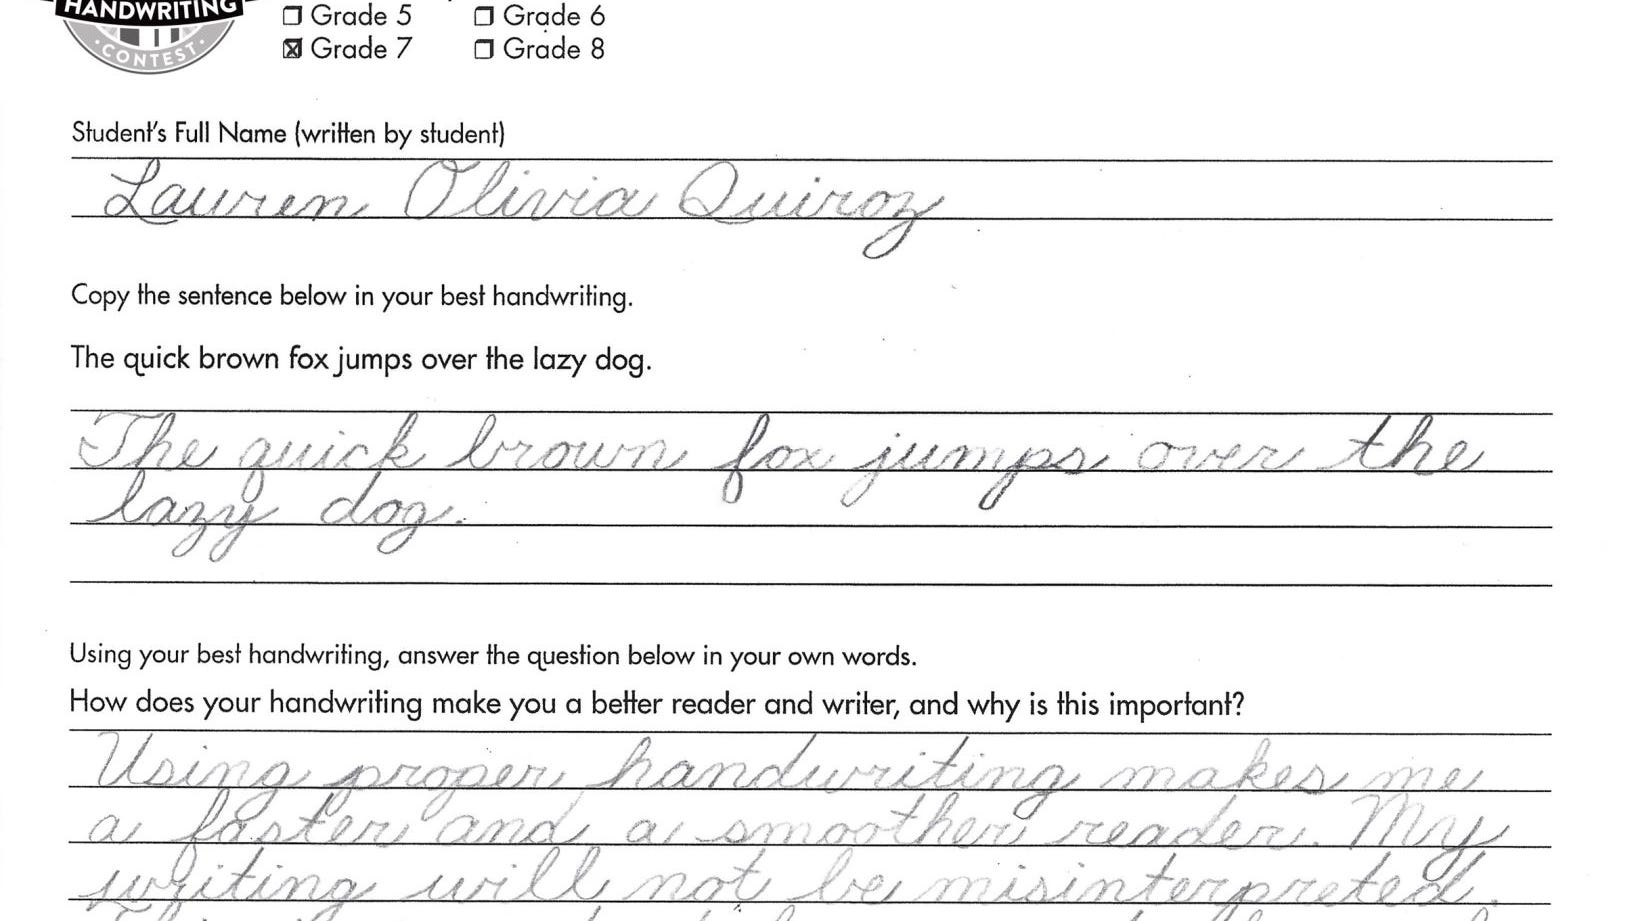 HANDWRITING
CONTEST
Grade 5
Grade 6
Grade 7
Grade 8
Student's Full Name (written by student)
Lauren Olivia Quiroz
Copy the sentence below in your best handwriting.
The quick brown fox jumps over the lazy dog.
The quick brown fox jumps over the
lazy dog.
Using your best handwriting, answer the question below in your own words.
How does your handwriting make you a better reader and writer, and why is this important?
Using proper handwriting makes me
a faster and a smoother reader. My
writing will not be misinterpreted.